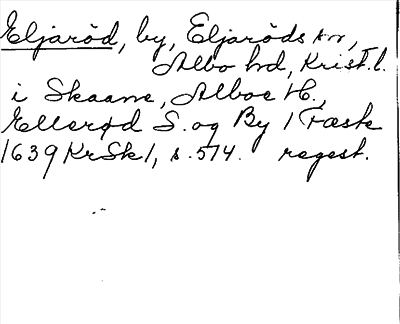 Eljaröd, by, Eljaröds sn,
Albo hd, Krist. l.
i Skaane, Alboe H.,
Ellerød S. og By / Fæste
1639 KrSk 1, s. 514. regest.